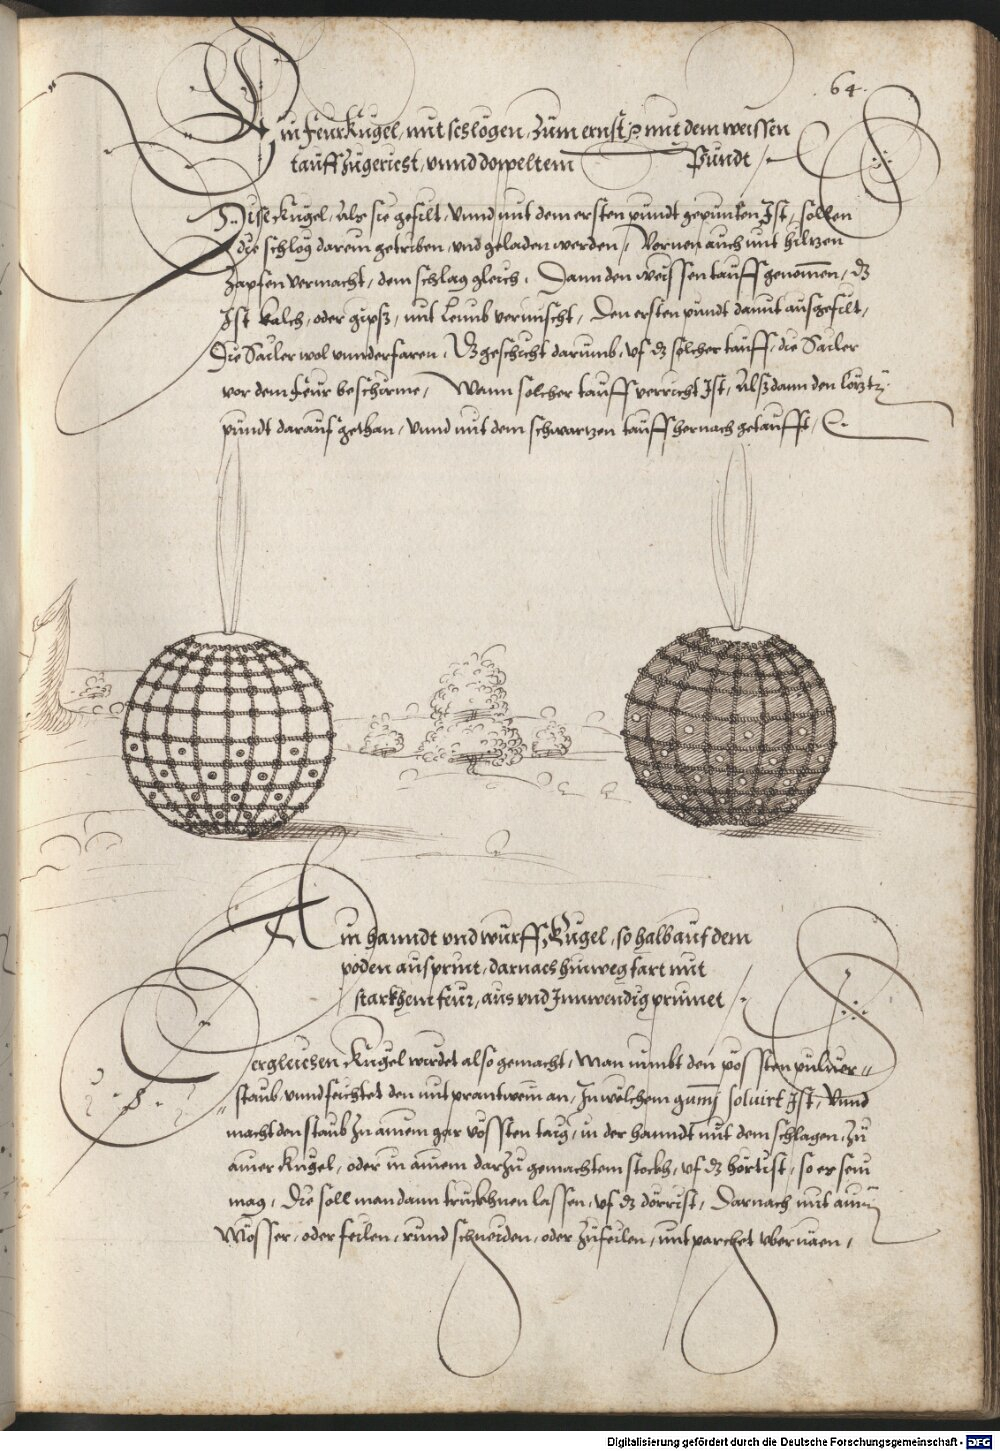 64.
Ein feur Kugel, mit schlögen, zum ernst, mit dem weissen
tauff zugericht, vnnd doppeltem Pundt
Dise Kugel, Als sie gefilt, Vnnd mit dem ersten pundt gepunten Ist, sollen
die schlög darein getriben, vnd geladen werden, Vornen auch mit hiltzen
Zapfen vermacht, dem schlag gleich. Dann den weissen tauff genomen, dz
Ist kalch, oder gipß, mit Leimb vermischt, Den ersten pundt damit ausgefilt,
Die Sailer wol vnnderfaren, Dz geschicht darumb, vf dz solcher tauff, die Sailer
vor dem feur beschirme, Wann solcher tauff verricht Ist, Alßdann den lötzt
pundt darauf gethan, Vnnd mit dem schwartzen tauff hernach getaufft,
Ain hanndt vnd wurff Kugel, so halb auf dem
poden ausprint, darnach hinweg fart mit
starkhem feur, aus vnd Innwendig prinnet
Dergleichen Kugel wirdet also gemacht, Man nimbt den pössten puluer
staub, vnnd feichtet den mit prantwein an, In wölchem gummj soluirt Ist, Vnnd
macht den staub zu ainem gar vössten taig, in der hanndt mit dem schlagen, zu
ainer Kugel, oder in ainem darzu gemachtem stockh, vf dz hörtist, so er sein
mag, Die soll man dann truckhnen lassen, vf dz dörrist, Darnach mit ainem
Mösser, oder feilen, rund schneiden, oder zufeilen, mit parchet vbernäen,
Digitalisierung gefördert durch die Deutsche Forschungsgemeinschaft - DFG